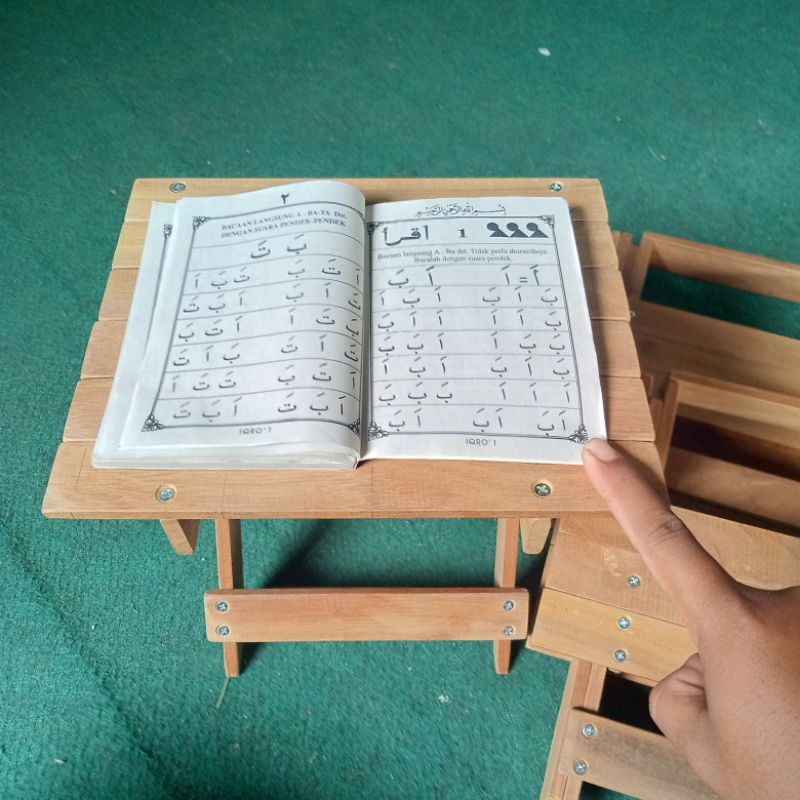 بِسْمِ اللهِ الرَّحْمٰنِ الرَّحِيْمِ
اقرأ 1
Bacaan langsung A - Ba dst. Tidak perlu diurai/dieja.
Bacalah dengan suara pendek.
اَ = اَ اَ بَ
بَ اَ بَ اَ بَ اَ
بَ اَ اَ اَ اَ بَ
بَ بَ اَ اَ بَ بَ
بَ اَ بَ اَ بَ اَ
اَ اَ اَ بَ بَ بَ
اَ بَ اَ بَ اَ بَ
IQRO' 1
٢
BACAAN LANGSUNG A - BA-TA Dst.
DENGAN SUARA PENDEK-PENDEK.
بَ تَ
اَ تَ بَ تَ بَ اَ
تَ اَ بَ اَ بَ تَ
بَ تَ اَ اَ تَ بَ
تَ اَ تَ بَ اَ تَ
اَ تَ بَ تَ تَ اَ
اَ بَ تَ اَ بَ تَ
IQRO' 1